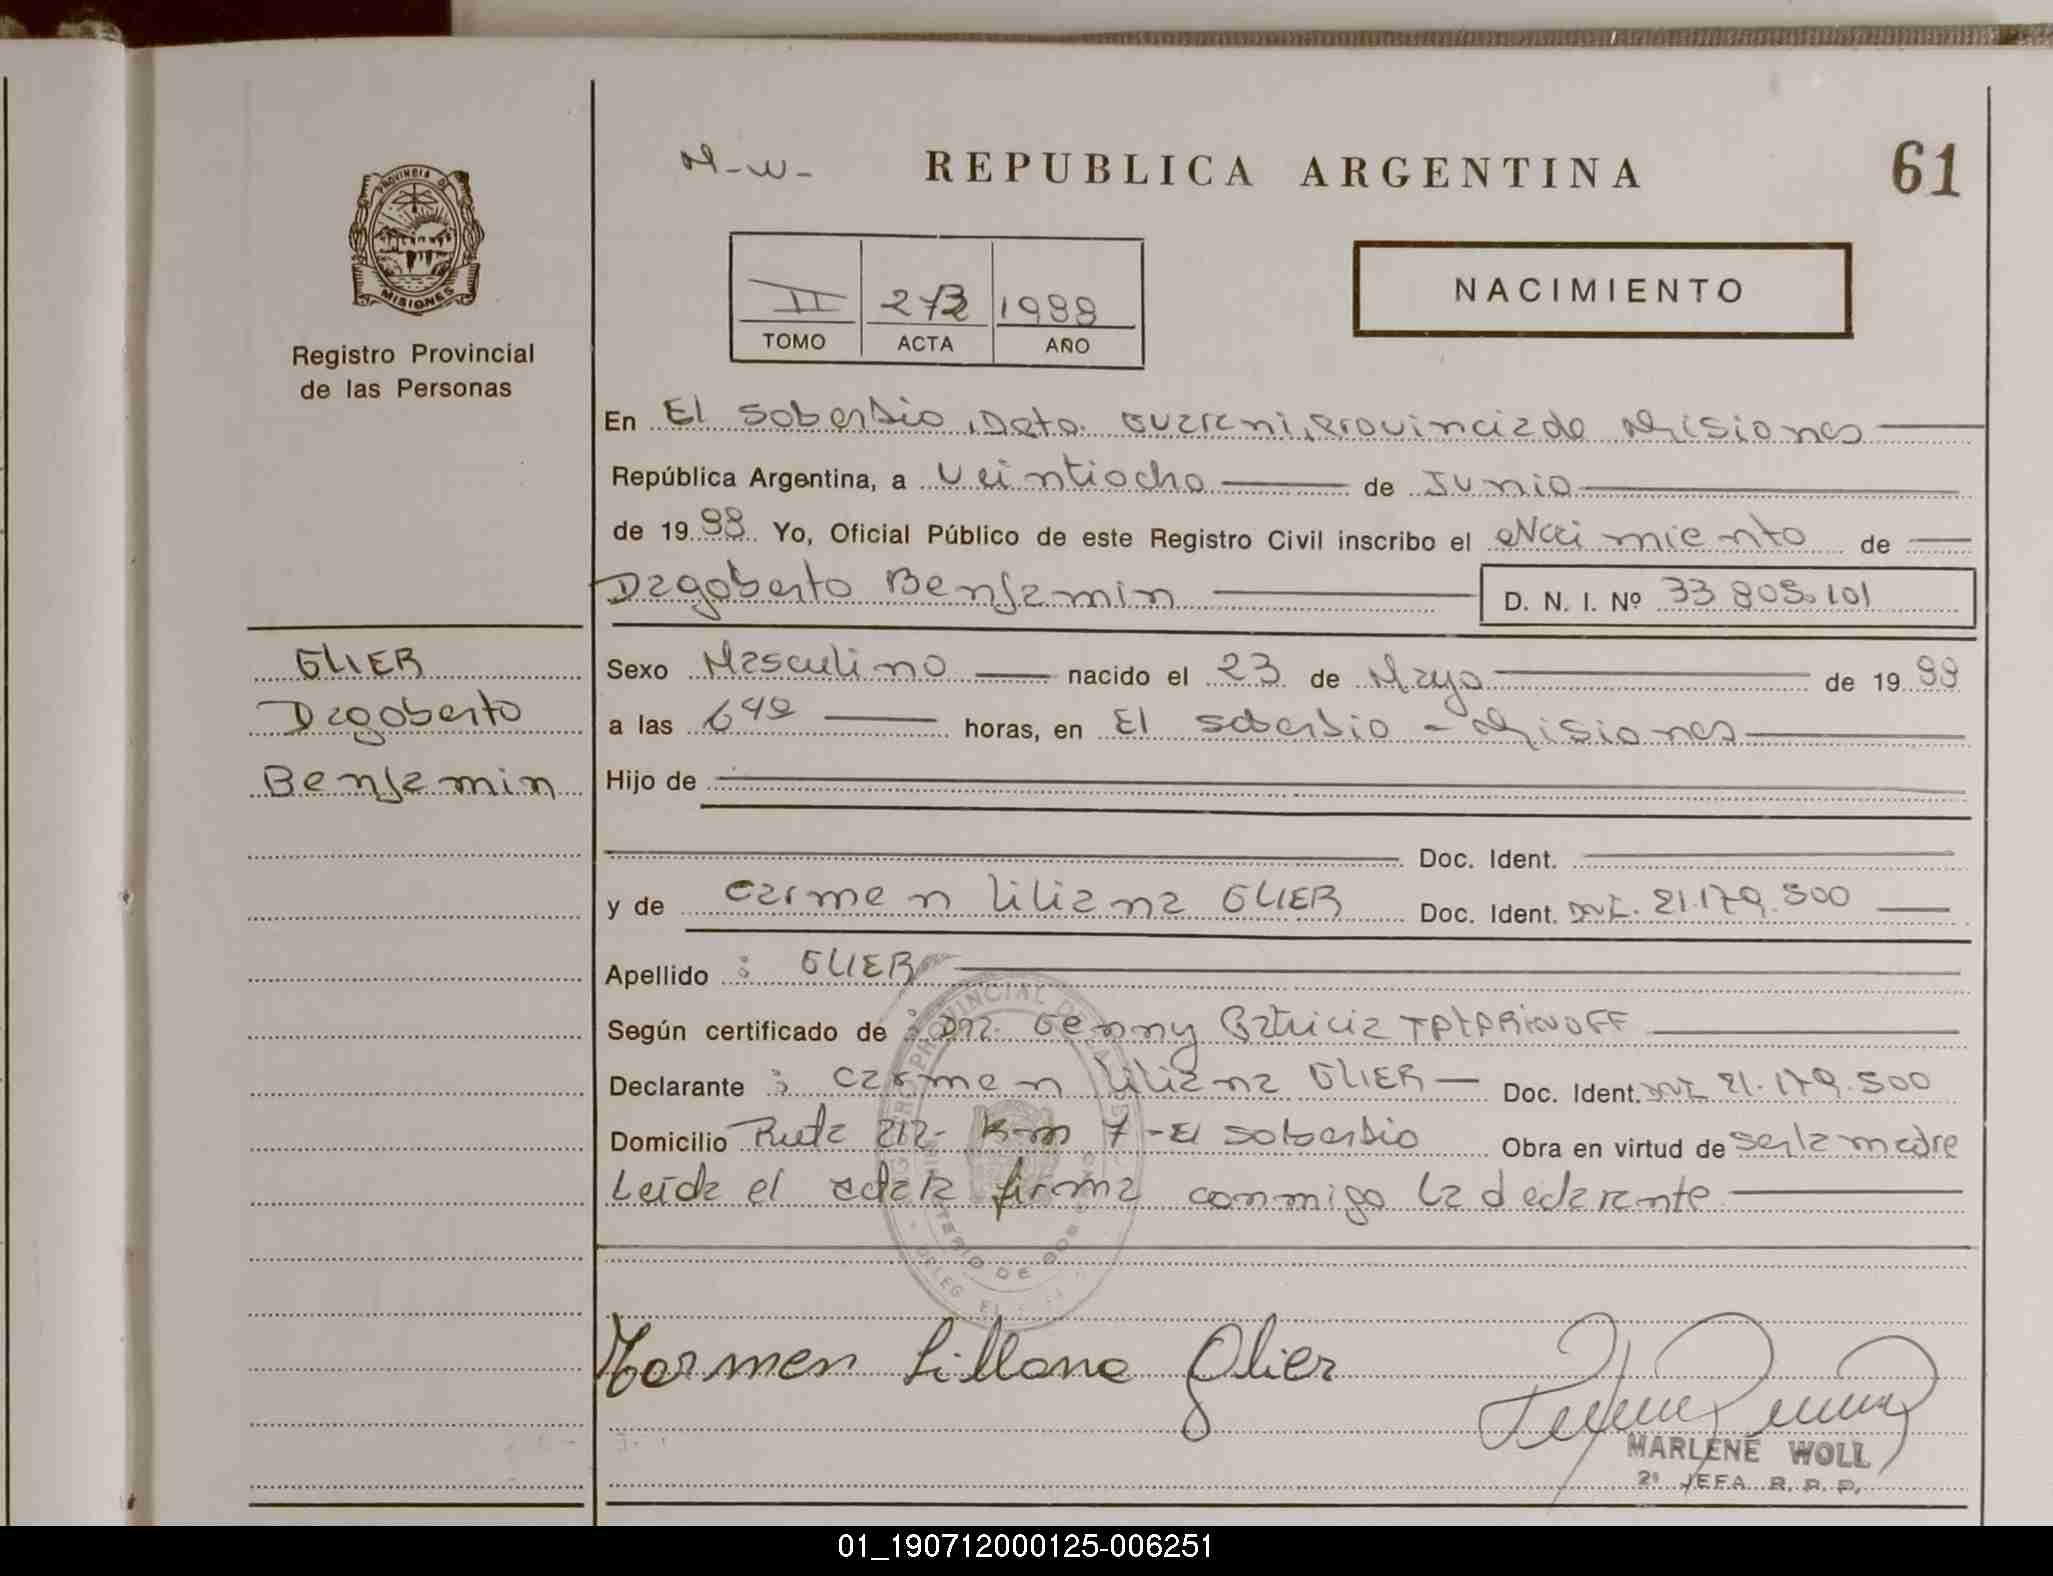 M-W-
REPUBLICA ARGENTINA
61
PROVINCIA DE
MISIONES
Registro Provincial
de las Personas
II
1988
TOMO
ACTA
AÑO
NACIMIENTO
En El Soberbio, Dpto. Guarani, Provincia de Misiones
República Argentina, a Veintiocho de Junio
de 1988. Yo, Oficial Público de este Registro Civil inscribo el Nacimiento de
Dagoberto Benjamin
D. N. I. Nº 33.805.101
GLIER
Dagoberto
Benjamin
Sexo Masculino nacido el 23 de Mayo de 1988
a las horas, en El Soberbio - Misiones
Hijo de
Doc. Ident.
y de Carmen Liliana GLIER Doc. Ident. DNI. 21.179.500
Apellido : GLIER
Según certificado de : Dra. Genny Patricia
Declarante : Carmen Liliana GLIER Doc. Ident. DNI 21.179.500
Domicilio Ruta 212- Km 7 - El Soberbio Obra en virtud de ser la madre
Leída el acta la firma conmigo la declarante
Carmen Lillana Glier
MARLENE WOLL
2ª JEFA R. P. P.
01_190712000125-006251